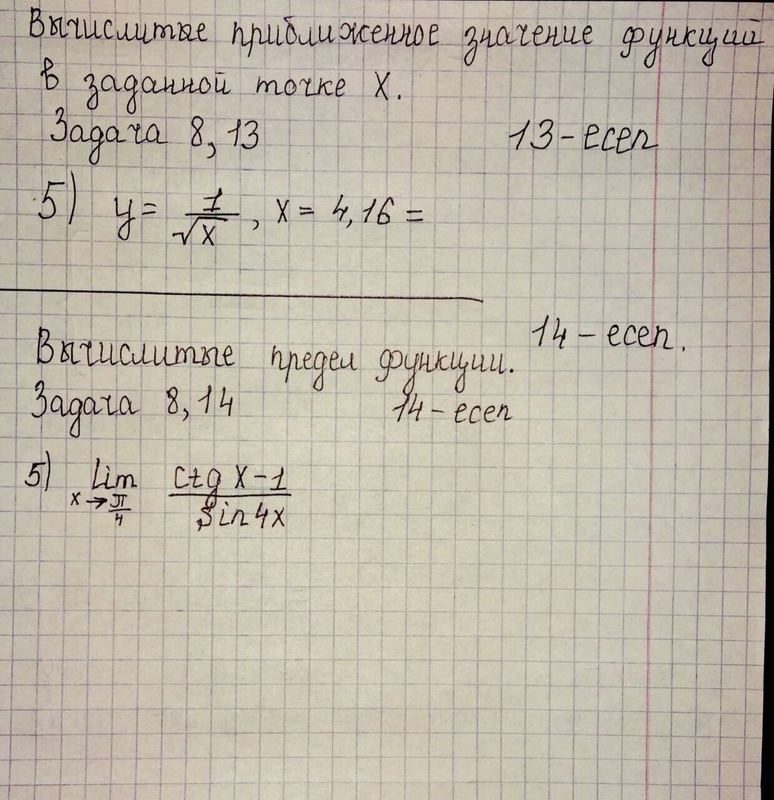 Вычислитые приближенное значение функций
в заданной точке X.
Задача 8, 13 13-есеп
5) y = 1/√x, x = 4,16 =
14 - есеп.
Вычислитые предел функции.
Задача 8, 14 14-есеп
5) Lim x→π/4 (ctg x-1)/(sin4x)